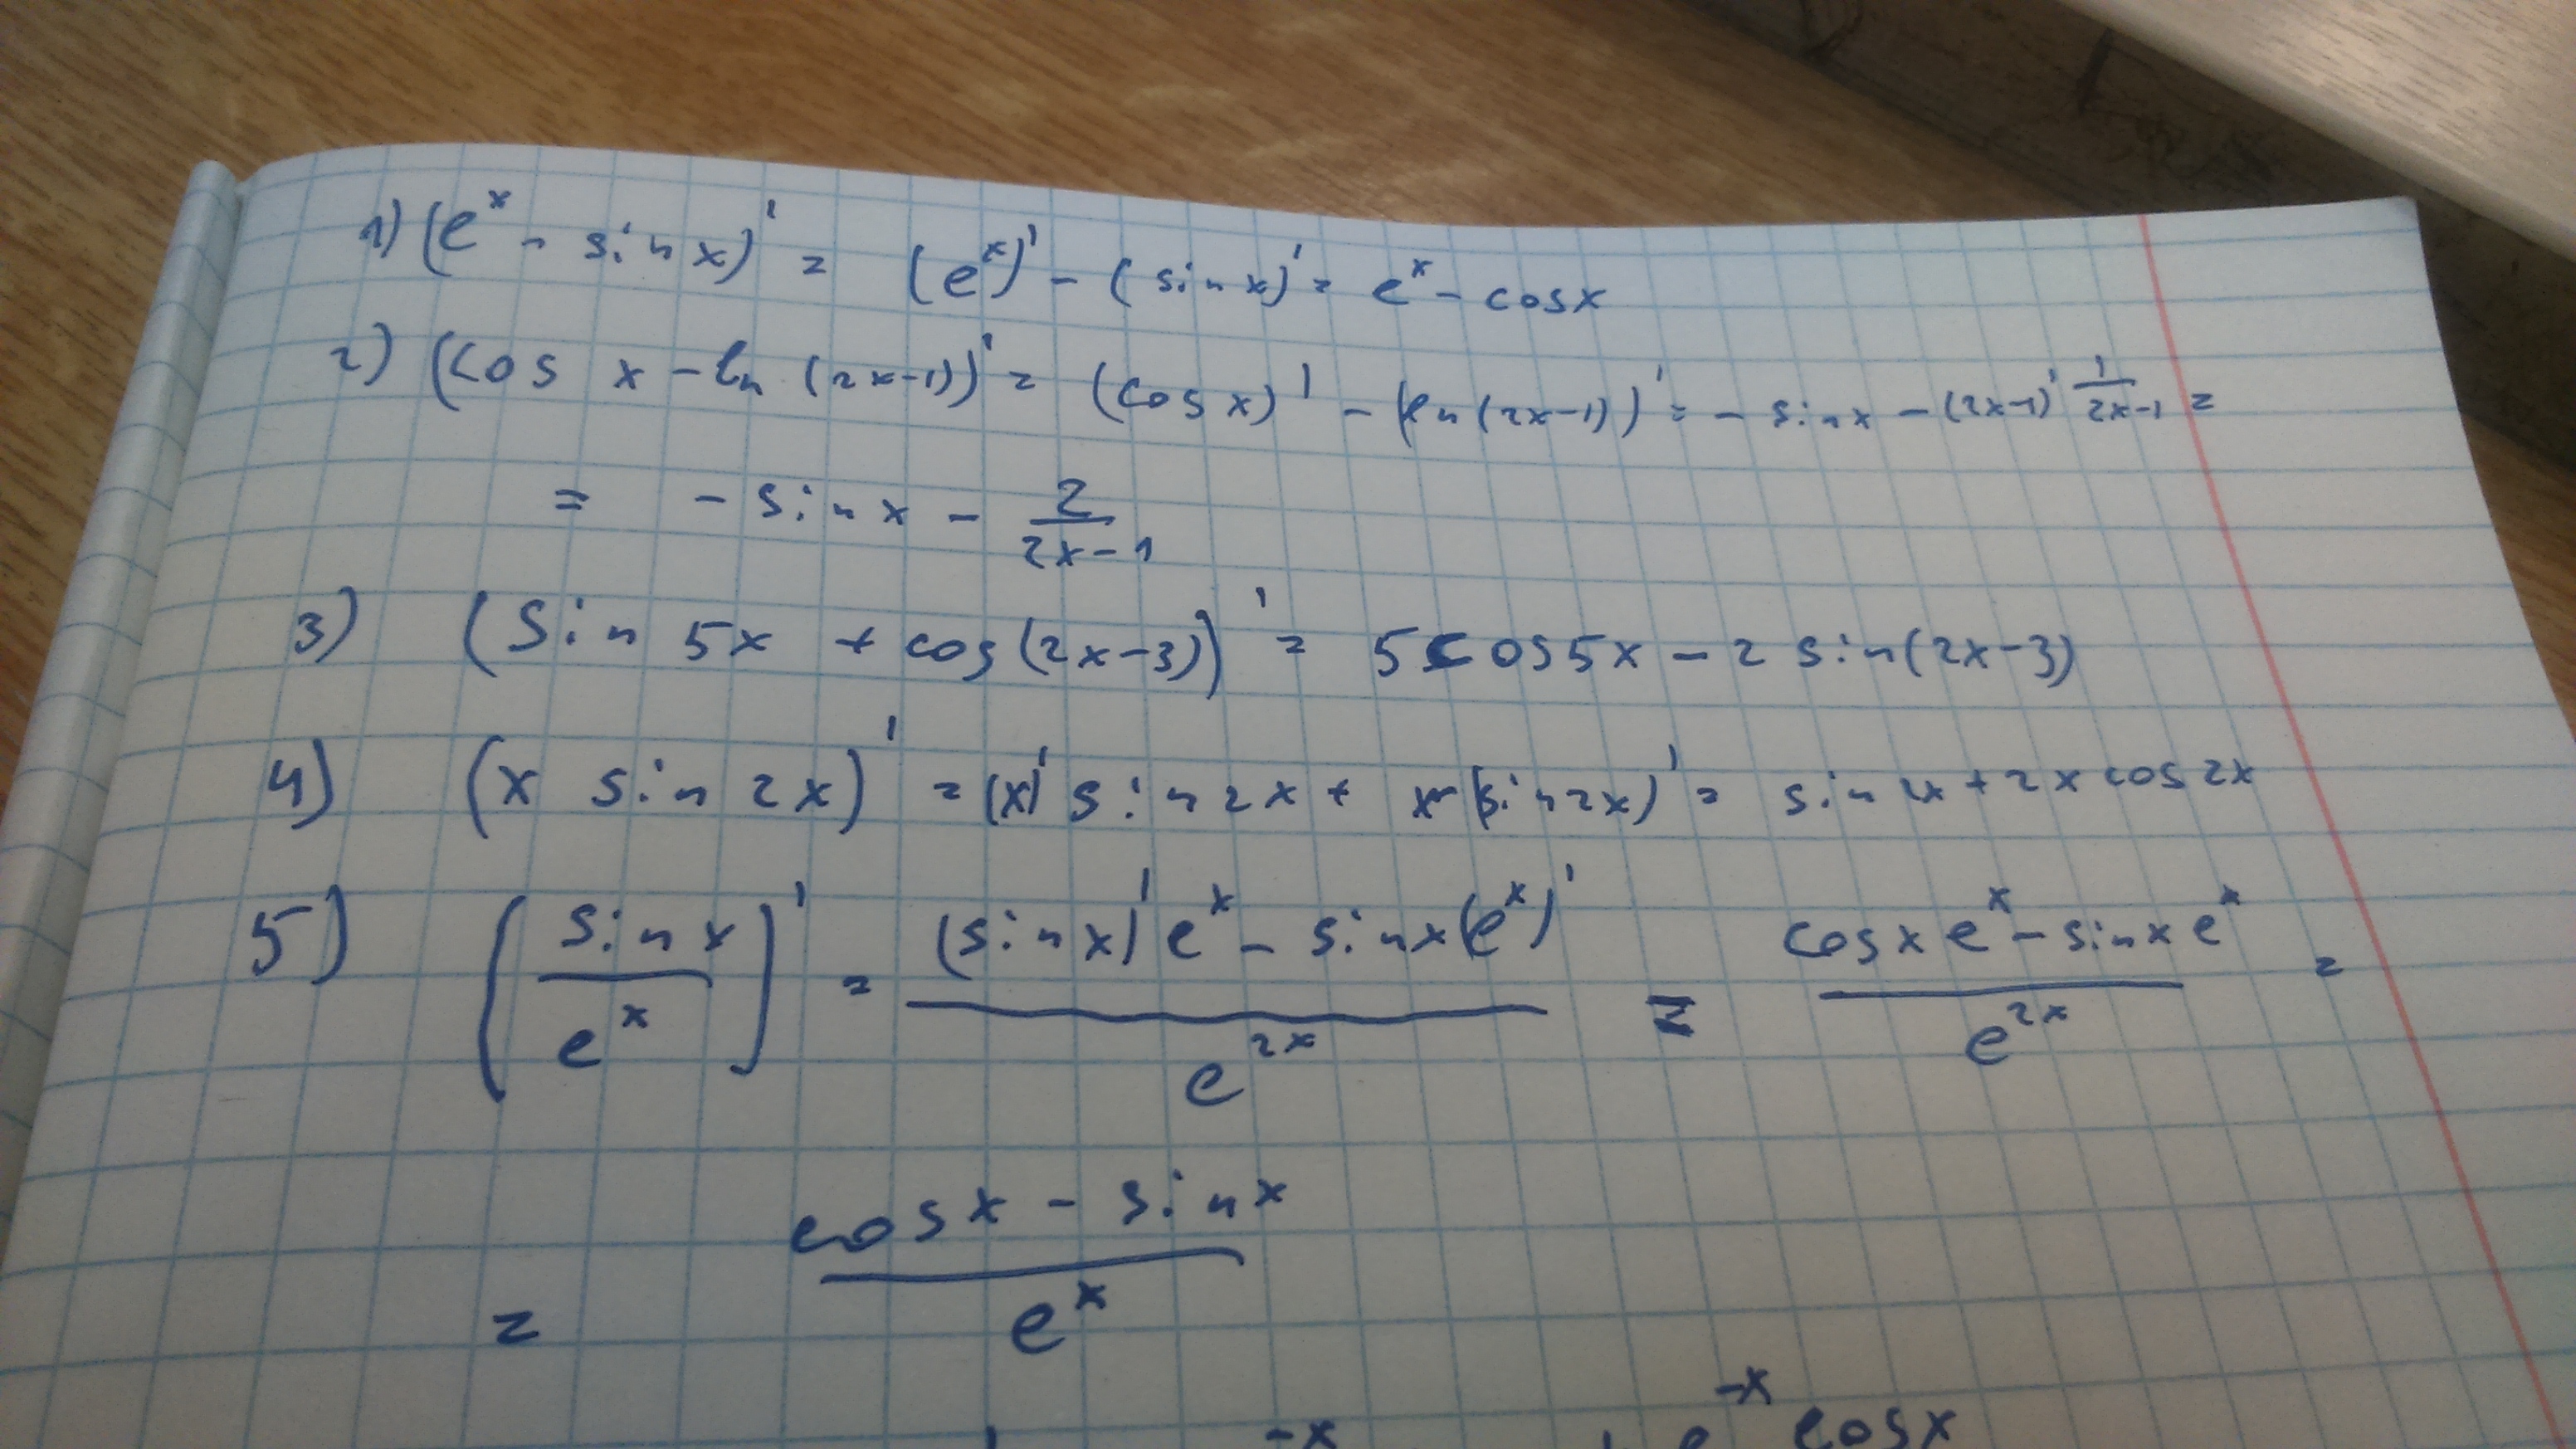 1) (e^x - sin x)' = (e^x)' - (sin x)' = e^x - cos x
2) (cos x - ln (2x-1))' = (cos x)' - (ln (2x-1))' = - sin x - (2x-1)' \frac{1}{2x-1} =
= - sin x - \frac{2}{2x-1}
3) (sin 5x + cos (2x-3))' = 5 cos 5x - 2 sin (2x-3)
4) (x sin 2x)' = (x)' sin 2x + x (sin 2x)' = sin 2x + 2x cos 2x
5) (\frac{sin x}{e^x})' = \frac{(sin x)' e^x - sin x (e^x)'}{e^{2x}} = \frac{cos x e^x - sin x e^x}{e^{2x}} =
= \frac{cos x - sin x}{e^x}
-x e^{-x} cos x